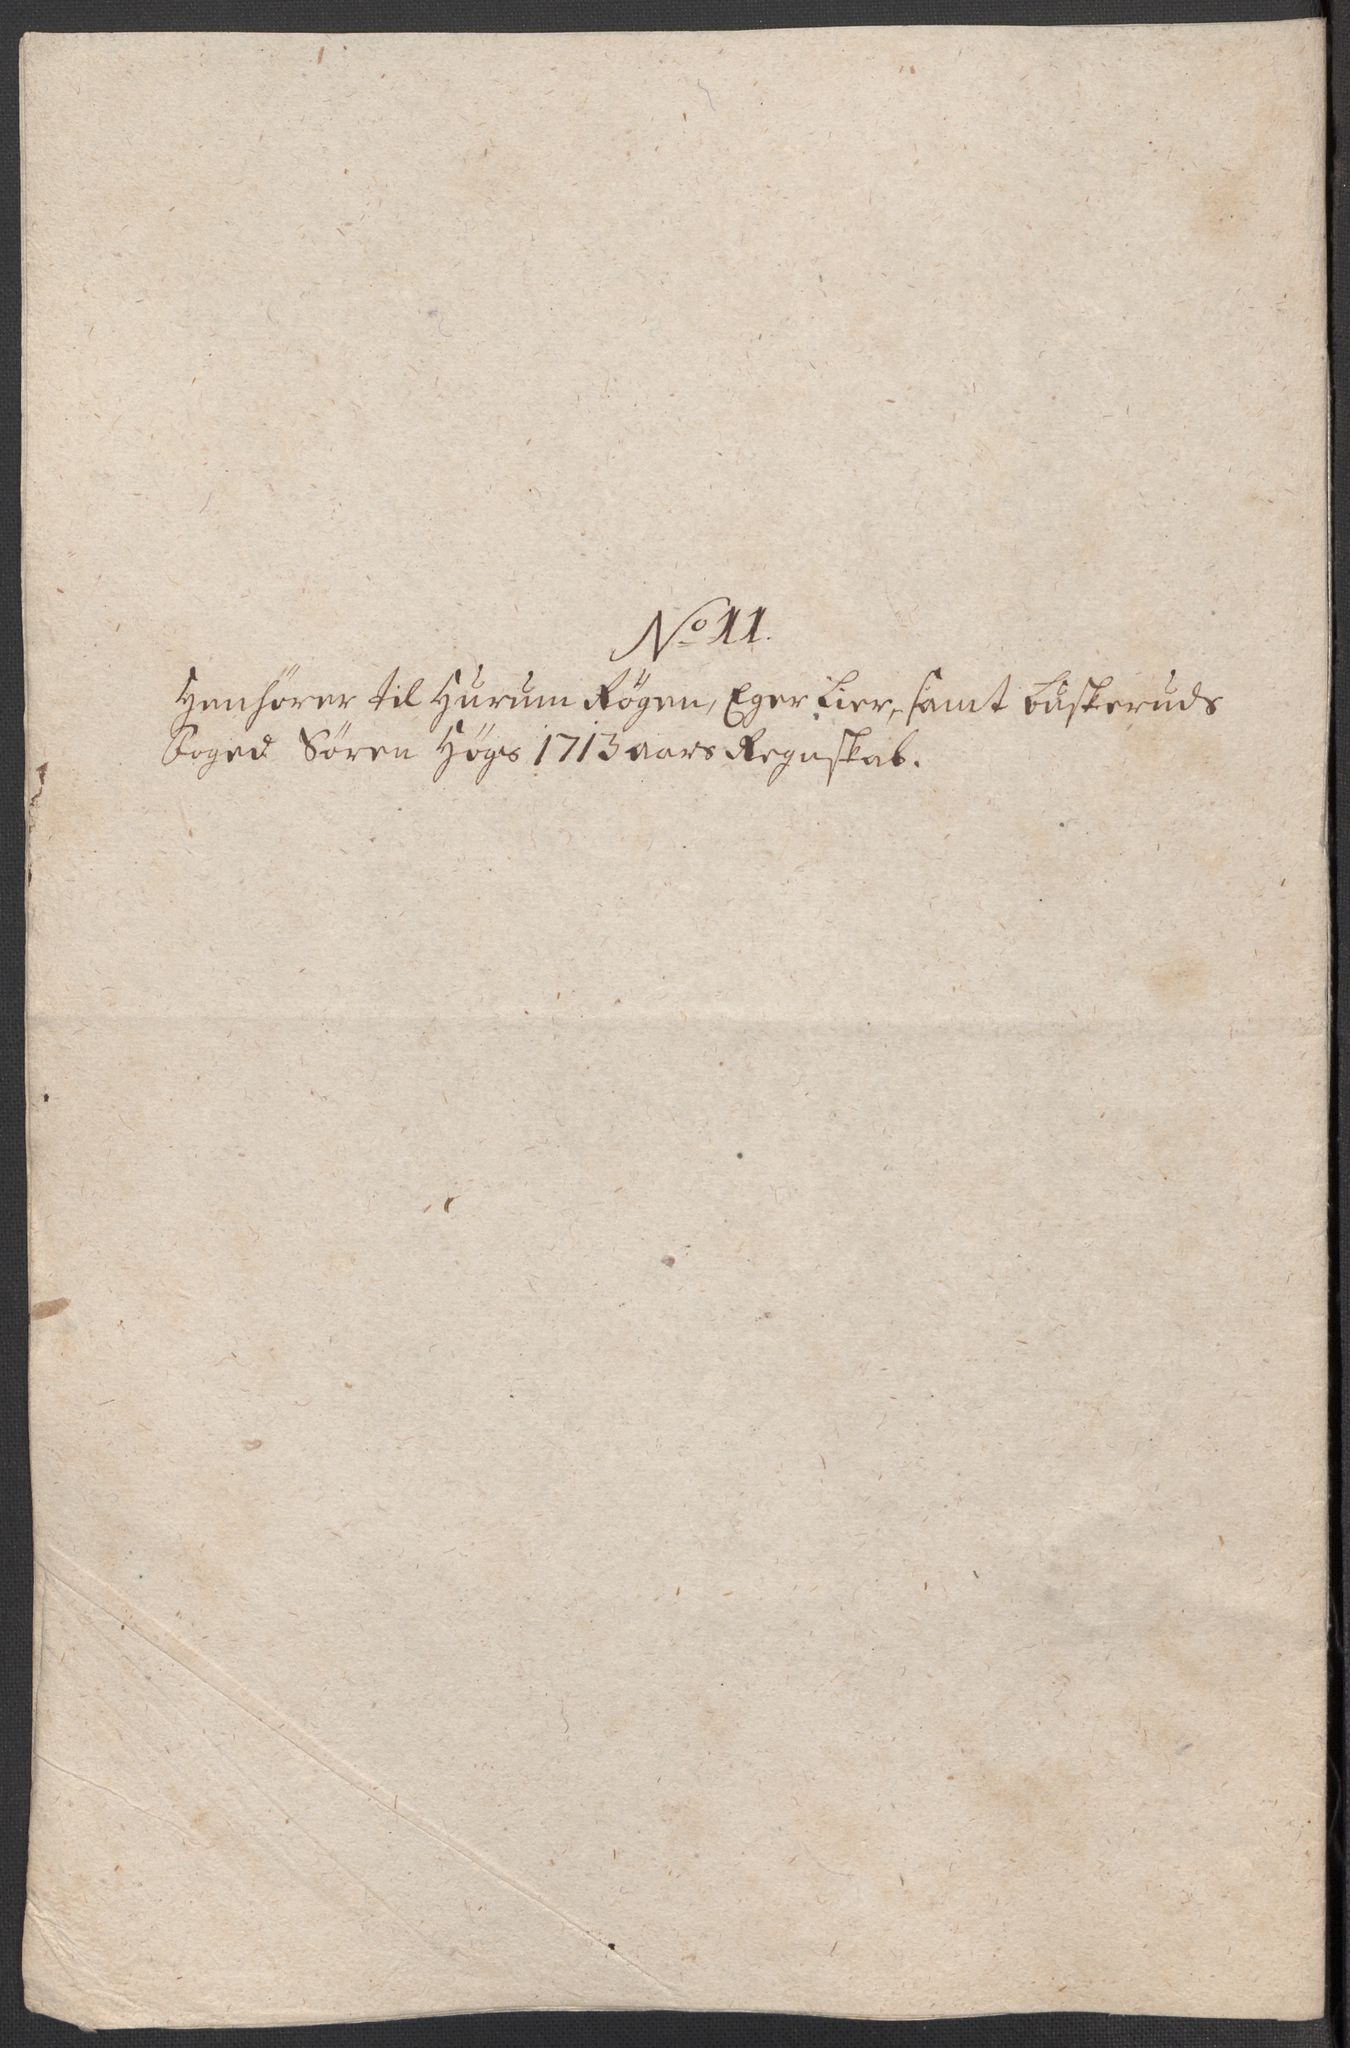 No 11.
Henhörer til Hurum Rögen, Eger Lier, samt Buskeruds
Foged Sören Högs 1713 aars Regnskab.